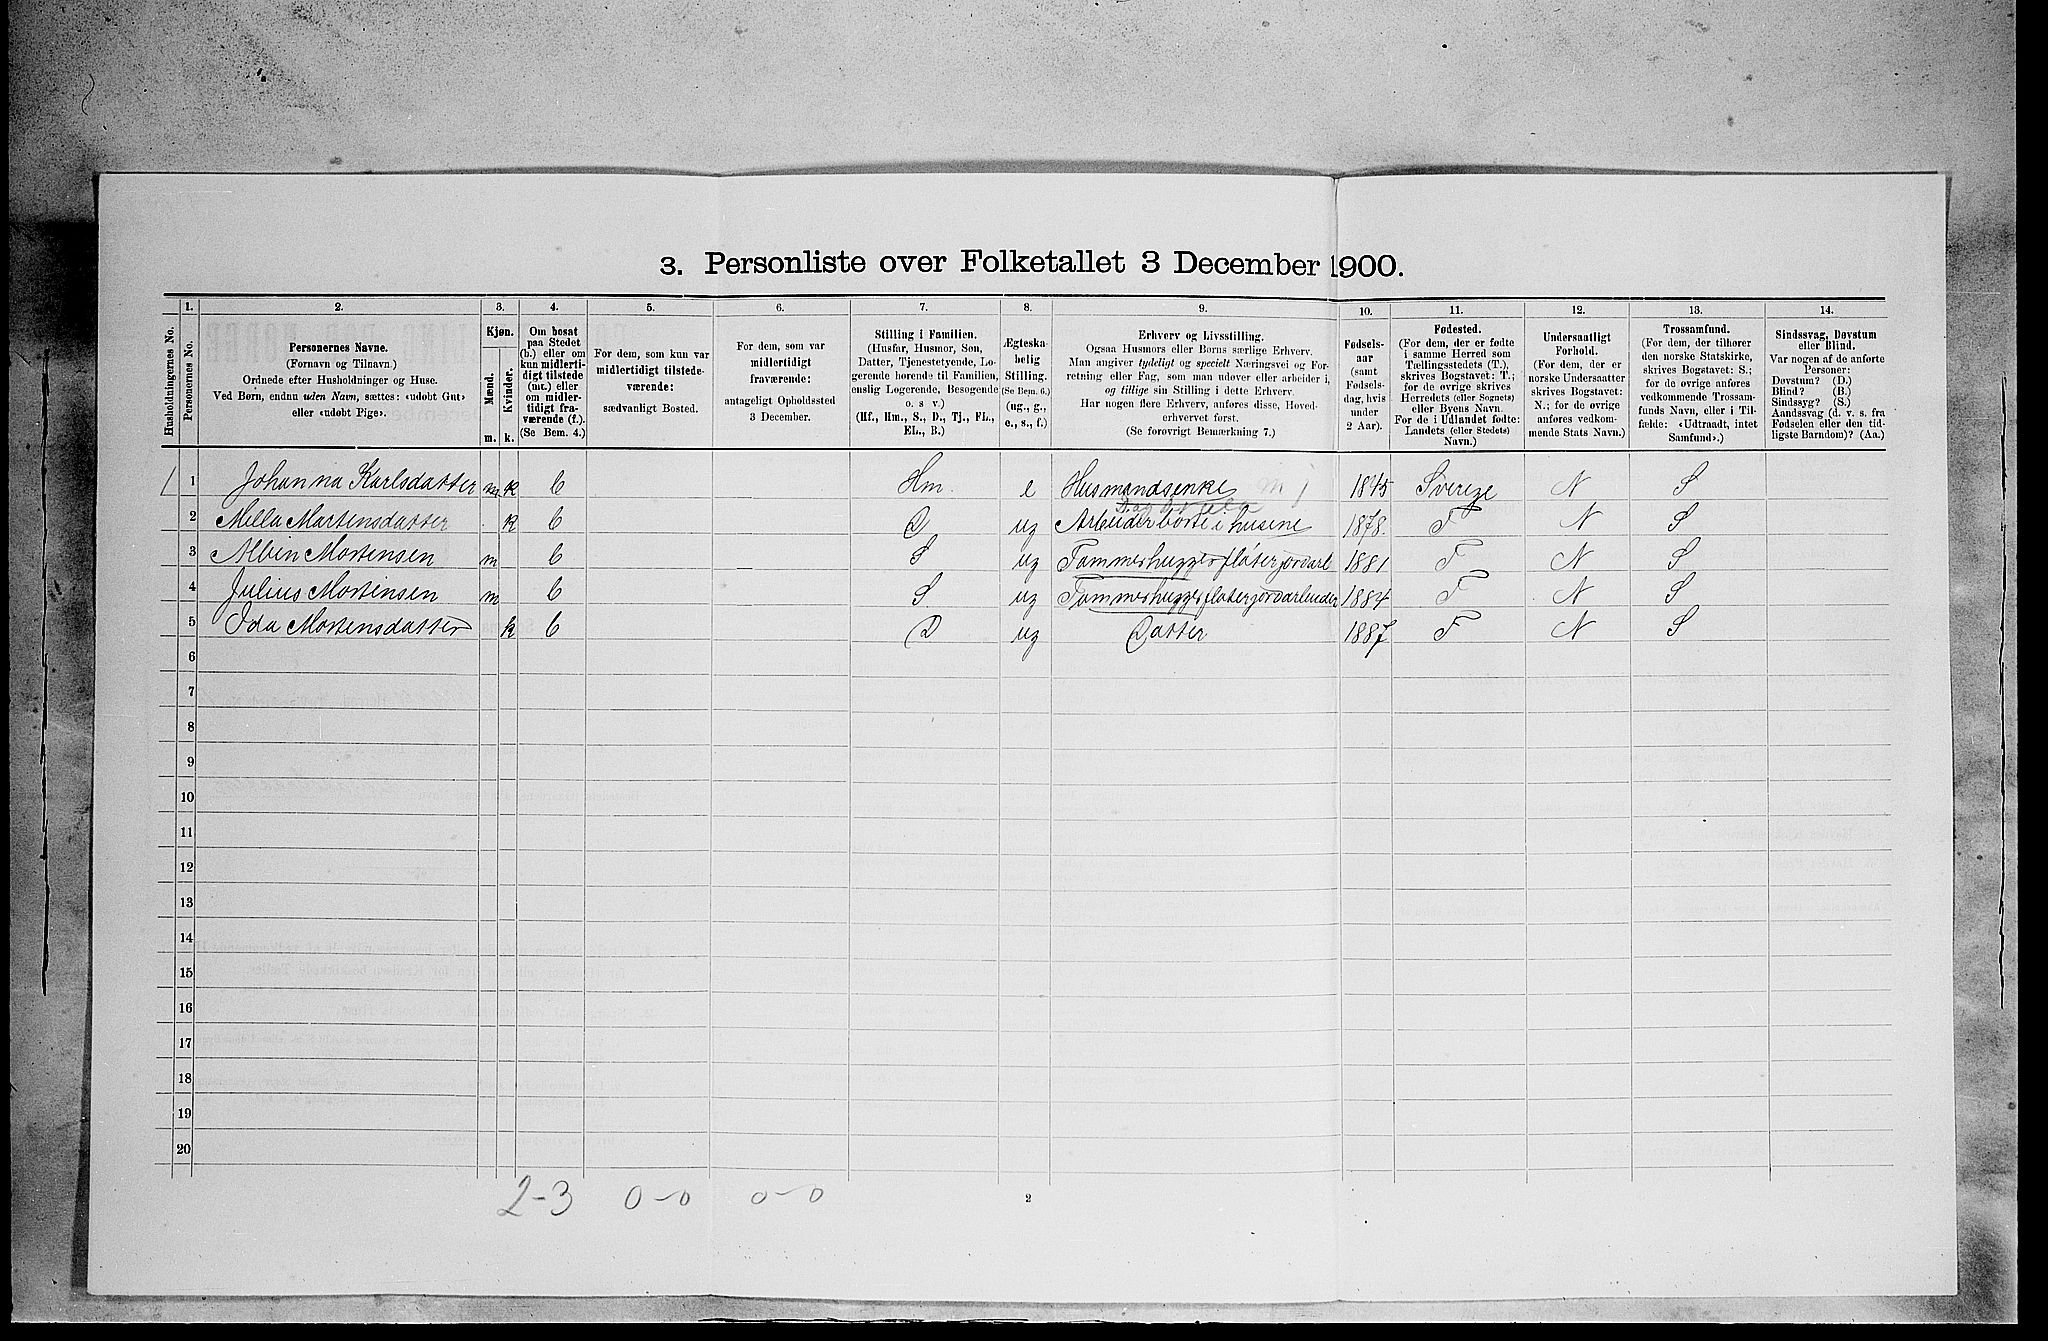 3. Personliste over Folketallet 3 December 1900.
Husholdningernes No.
1.
Personernes No.
2.
Personernes Navne.
(Fornavn og Tilnavn.)
Ordnede efter Husholdninger og Huse.
Ved Børn, endnu uden Navn, sættes: «udøbt Gut»
eller «udøbt Pige».
3.
Kjøn.
Mænd.
Kvinder.
m.
k.
4.
Om bosat
paa Stedet
(b.) eller om
kun midlerti-
digt tilstede
(mt.) eller
om midler-
tidigt fra-
værende (f.).
(Se Bem. 4.)
5.
For dem, som kun var
midlertidigt tilstede-
værende:
sædvanligt Bosted.
6.
For dem, som var
midlertidigt
fraværende:
antageligt Opholdssted
3 December.
7.
Stilling i Familien.
(Husfar, Husmor, Søn,
Datter, Tjenestetyende, Lo-
gerende hørende til Familien,
enslig Logerende, Besøgende
o. s v.)
(Hf., Hm., S., D., Tj., FL.,
EL., B.)
8.
Ægteska-
belig
Stilling.
(Se Bem. 6.)
(ug., g.,
e., s., f.)
9.
Erhverv og Livsstilling.
Ogsaa Husmors eller Børns særlige Erhverv.
Man angiver tydeligt og specielt Næringsvei og For-
retning eller Fag, som man udøver eller arbeider i,
og tillige sin Stilling i dette Erhverv.
Har nogen flere Erhverv, anføres disse, Hoved-
erhvervet først.
(Se forøvrigt Bemærkning 7.)
10.
Fødsels-
aar
(samt
Fødsels-
dag, hvis
under
2 Aar).
11.
Fødested.
(For dem, der er fødte
i samme Herred som
Tællingsstedets (T.),
skrives Bogstavet: T.;
for de øvrige skrives
Herredets (eller Sognets)
eller Byens Navn.
For de i Udlandet fødte:
Landets (eller Stedets)
Navn.)
12.
Undersaatligt
Forhold.
(For dem, der er
norske Undersaatter
skrives Bogstavet:
N.; for de øvrige
anføres vedkom-
mende Stats Navn.)
13.
Trossamfund.
(For dem, der tilhører
den norske Statskirke,
skrives Bogstavet: S.;
for de øvrige anføres
vedkommende Trossam-
funds Navn, eller i Til-
fælde: «Udtraadt, intet
Samfund».)
14.
Sindssvag, Døvstum
eller Blind.
Var nogen af de anførte
Personer:
Døvstum? (D.)
Blind? (B.)
Sindssyg? (S.)
Aandssvag (d. v. s. fra
Fødselen eller den tid-
ligste Barndom)? (Aa.)
1 1 Johanna Karlsdatter k b Hm. e Husmandsenke 1845 Sverige N S
2 Milla Martensdatter k b D ug Arbeider borte i husene 1878. T N S
3 Albin Mortensen m b S ug Tømmerhugger fløter jordarb 1881 T N S
4 Julius Mortensen m b S ug Tømmerhugger fløter jordarbeider 1884 T N S
5 Ida Mortensdatter k b D ug Datter 1887 T N S
6
7
8
9
10
11
12
13
14
15
16
17
18
19
20
2-3 0-0 0-0
2